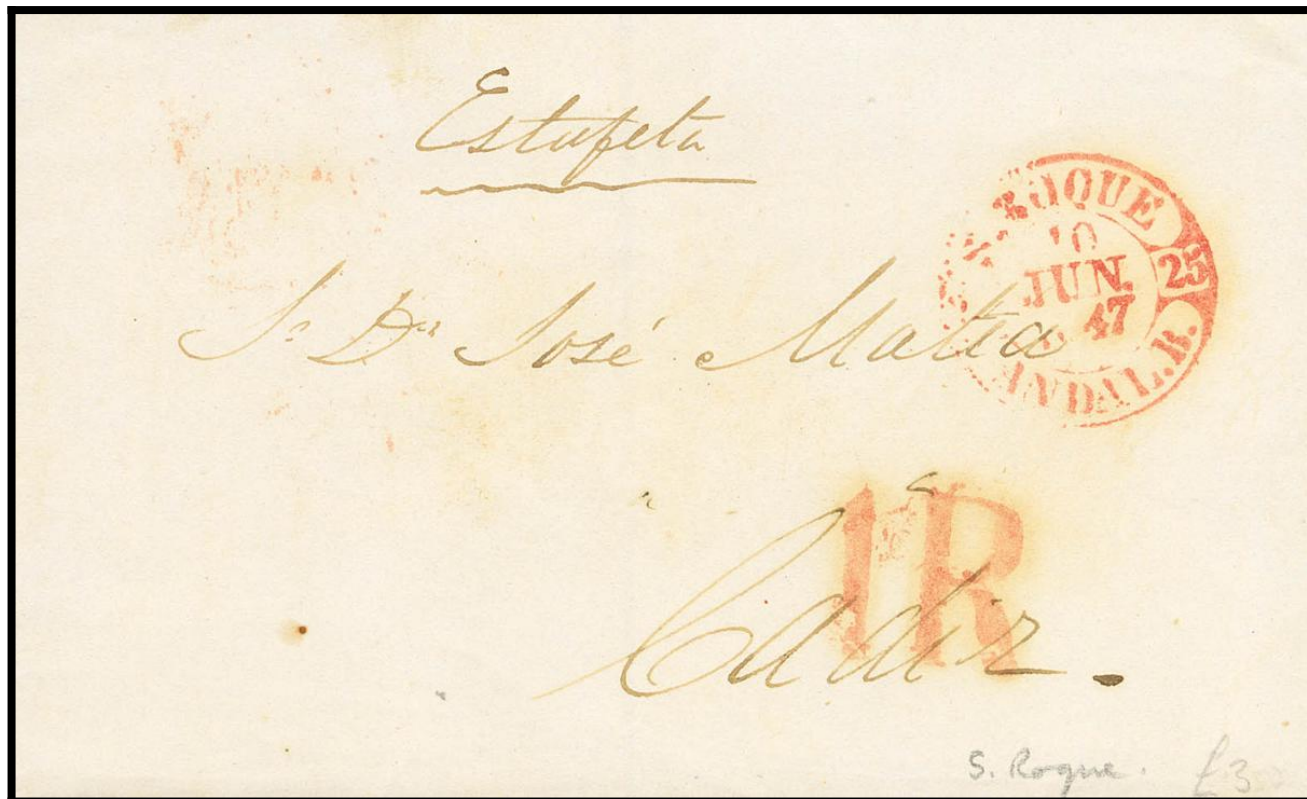 Estafeta
ROQUE
10
JUN.
47
25
ANDAL. B.
Sr. Dn. José Matia
1 R
Cádiz.
S. Roque. £3